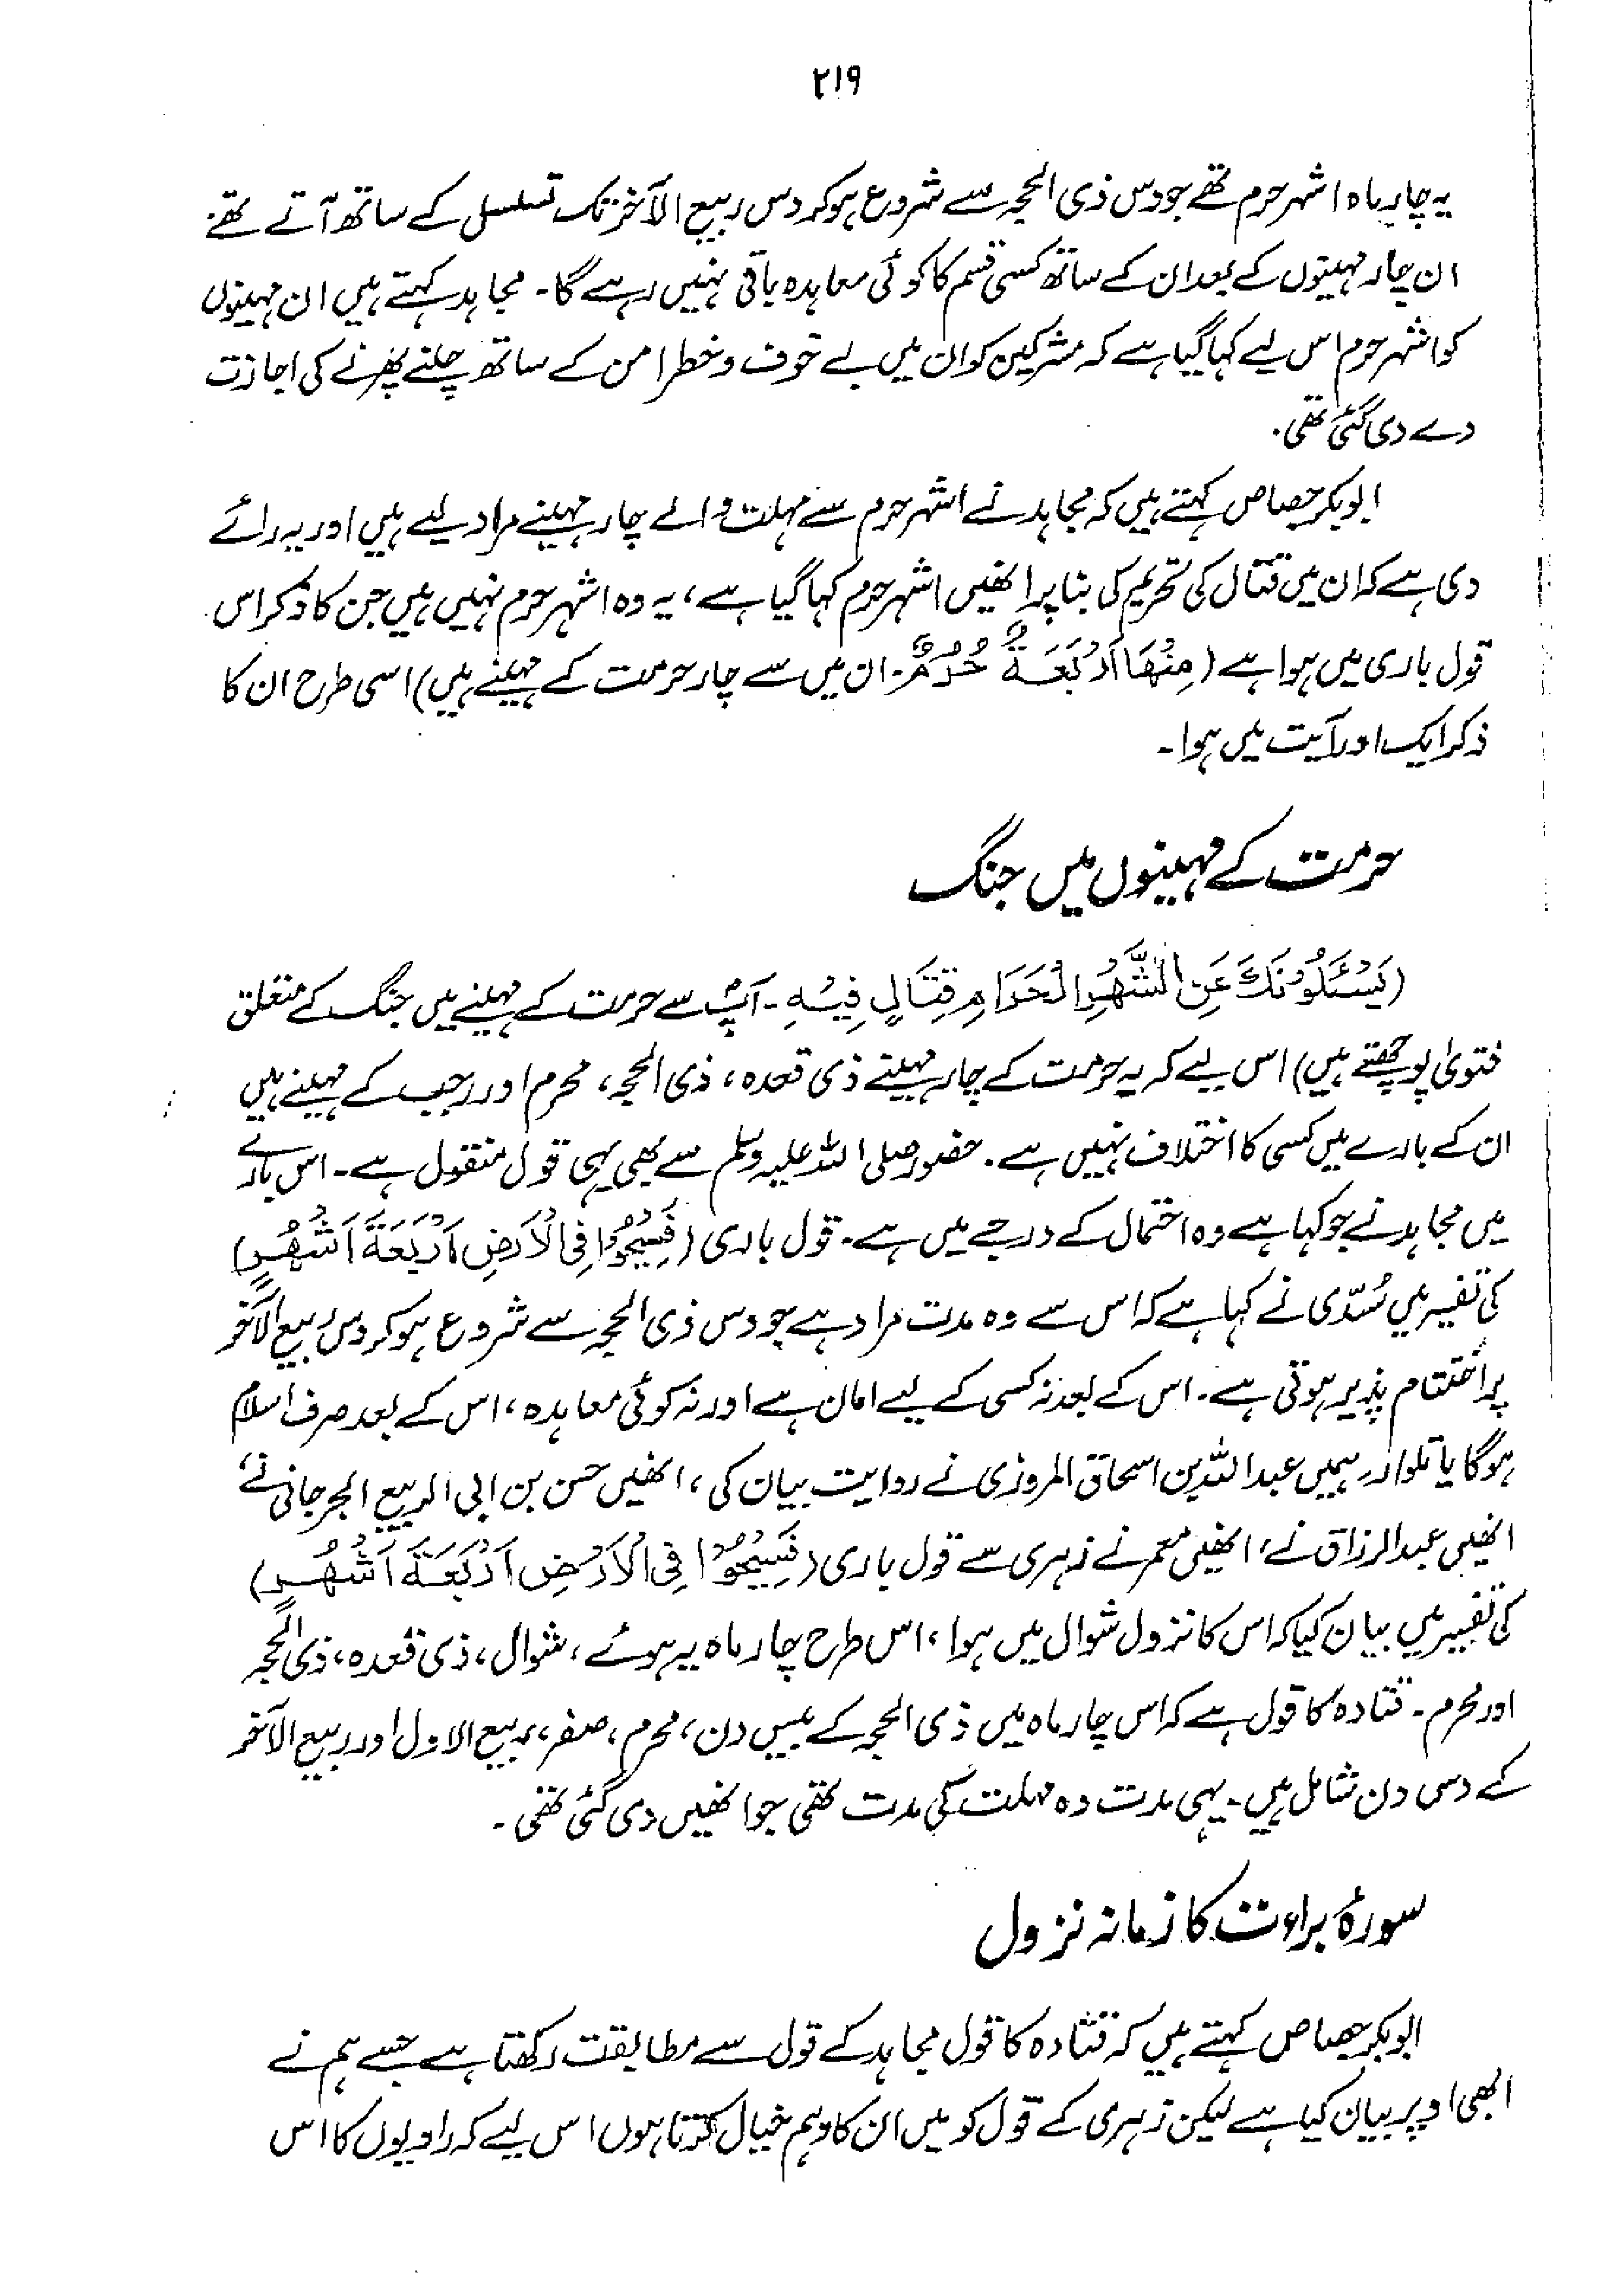 ۲۱۹
یہ چار ماہ اشہر حرم تھے جو دس ذی الحجہ سے شروع ہو کر دس ربیع الآخر تک تسلسل کے ساتھ آتے تھے۔
ان چار مہینوں کے بعد ان کے ساتھ کسی قسم کا کوئی معاہدہ باقی نہیں رہے گا۔ مجاہد کہتے ہیں ان مہینوں
کو اشہر حرم اس لیے کہا گیا ہے کہ مشرکین کو ان میں بے خوف و خطر امن کے ساتھ چلنے پھرنے کی اجازت
دے دی گئی تھی۔
ابوبکر جصاص کہتے ہیں کہ مجاہد نے اشہر حرم سے مہلت والے چار مہینے مراد لیے ہیں اور یہ رائے
دی ہے کہ ان میں قتال کی تحریم کی بنا پر انھیں اشہر حرم کہا گیا ہے، یہ وہ اشہر حرم نہیں ہیں جن کا ذکر اس
قول باری میں ہوا ہے (مِنْهَا اَرْبَعَةٌ حُرُمٌ۔ ان میں سے چار حرمت کے مہینے ہیں) اسی طرح ان کا
ذکر ایک اور آیت میں ہوا۔
حرمت کے مہینوں میں جنگ
(يَسْئَلُوْنَكَ عَنِ الشَّهْرِ الْحَرَامِ قِتَالٍ فِيْهِ۔ آپؐ سے حرمت کے مہینے میں جنگ کے متعلق
فتویٰ پوچھتے ہیں) اس لیے کہ یہ حرمت کے چار مہینے ذی قعدہ، ذی الحجہ، محرم اور رجب کے مہینے ہیں
ان کے بارے میں کسی کا اختلاف نہیں ہے۔ حضور صلی اللہ علیہ وسلم سے بھی یہی قول منقول ہے۔ اس بارے
میں مجاہد نے جو کہا ہے وہ احتمال کے درجے میں ہے۔ قول باری (فَسِيْحُوْا فِي الْاَرْضِ اَرْبَعَةَ اَشْهُرٍ)
کی تفسیر میں سُدّی نے کہا ہے کہ اس سے وہ مدت مراد ہے جو دس ذی الحجہ سے شروع ہو کر دس ربیع الآخر
پر اختتام پذیر ہوتی ہے۔ اس کے بعد نہ کسی کے لیے امان ہے اور نہ کوئی معاہدہ، اس کے بعد صرف اسلام
ہوگا یا تلوار۔ ہمیں عبداللہ بن اسحاق المروزی نے روایت بیان کی، انھیں حسن بن ابی الربیع الجرجانی نے،
انھیں عبدالرزاق نے، انھیں معمر نے زہری سے قول باری (فَسِيْحُوْا فِي الْاَرْضِ اَرْبَعَةَ اَشْهُرٍ)
کی تفسیر میں بیان کیا کہ اس کا نزول شوال میں ہوا، اس طرح چار ماہ یہ ہوئے، شوال، ذی قعدہ، ذی الحجہ
اور محرم۔ قتادہ کا قول ہے کہ اس چار ماہ میں ذی الحجہ کے بیس دن، محرم، صفر، ربیع الاول اور ربیع الآخر
کے دس دن شامل ہیں۔ یہی مدت وہ مہلت کی مدت تھی جو انھیں دی گئی تھی۔
سورۂ براءت کا زمانہ نزول
ابوبکر جصاص کہتے ہیں کہ قتادہ کا قول مجاہد کے قول سے مطابقت رکھتا ہے جسے ہم نے
ابھی اوپر بیان کیا ہے لیکن زہری کے قول کو میں ان کا وہم خیال کرتا ہوں اس لیے کہ راویوں کا اس